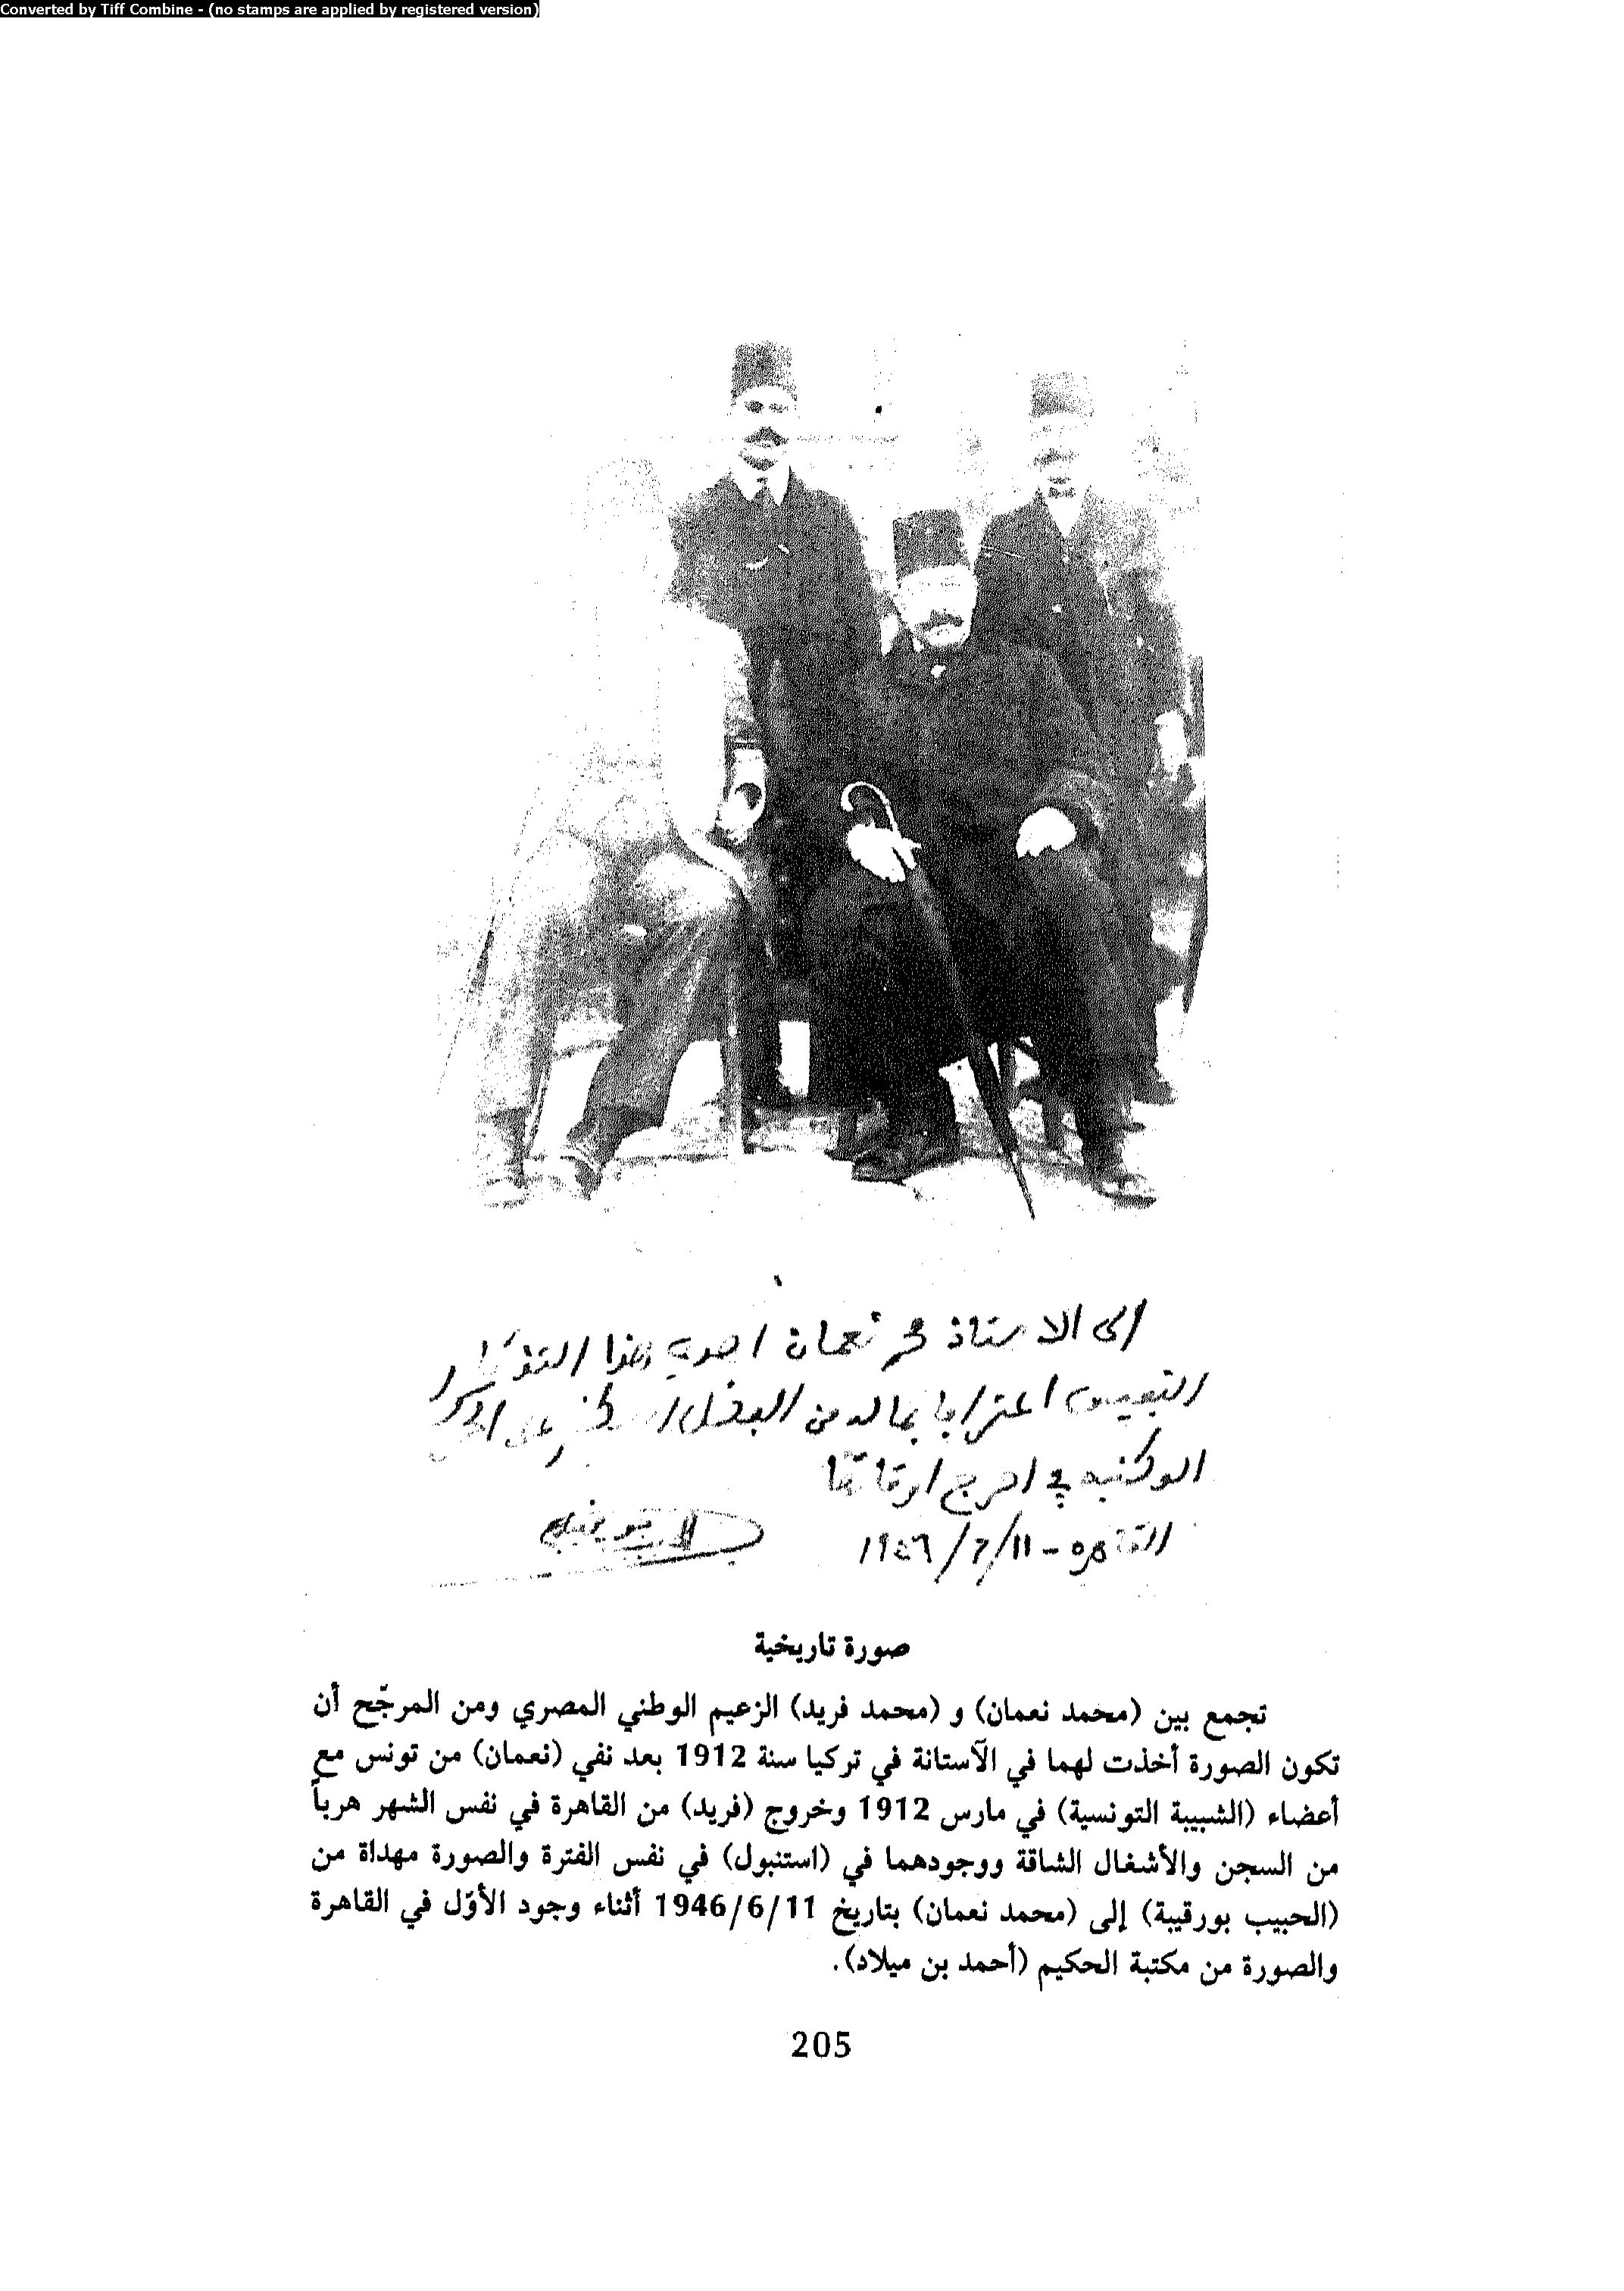 Converted by Tiff Combine - (no stamps are applied by registered version)
إلى الاستاذ محمد نعمان اهدي هذا التذكار
النفيس اعترافا بما له من الفضل على الحركة
الوطنية في احرج اوقاتها
القاهرة - 11/6/1946
صورة تاريخية
تجمع بين (محمد نعمان) و (محمد فريد) الزعيم الوطني المصري ومن المرجّح أن
تكون الصورة أخذت لهما في الآستانة في تركيا سنة 1912 بعد نفي (نعمان) من تونس مع
أعضاء (الشبيبة التونسية) في مارس 1912 وخروج (فريد) من القاهرة في نفس الشهر هرباً
من السجن والأشغال الشاقة ووجودهما في (استنبول) في نفس الفترة والصورة مهداة من
(الحبيب بورقيبة) إلى (محمد نعمان) بتاريخ 1946/6/11 أثناء وجود الأوّل في القاهرة
والصورة من مكتبة الحكيم (أحمد بن ميلاد).
205